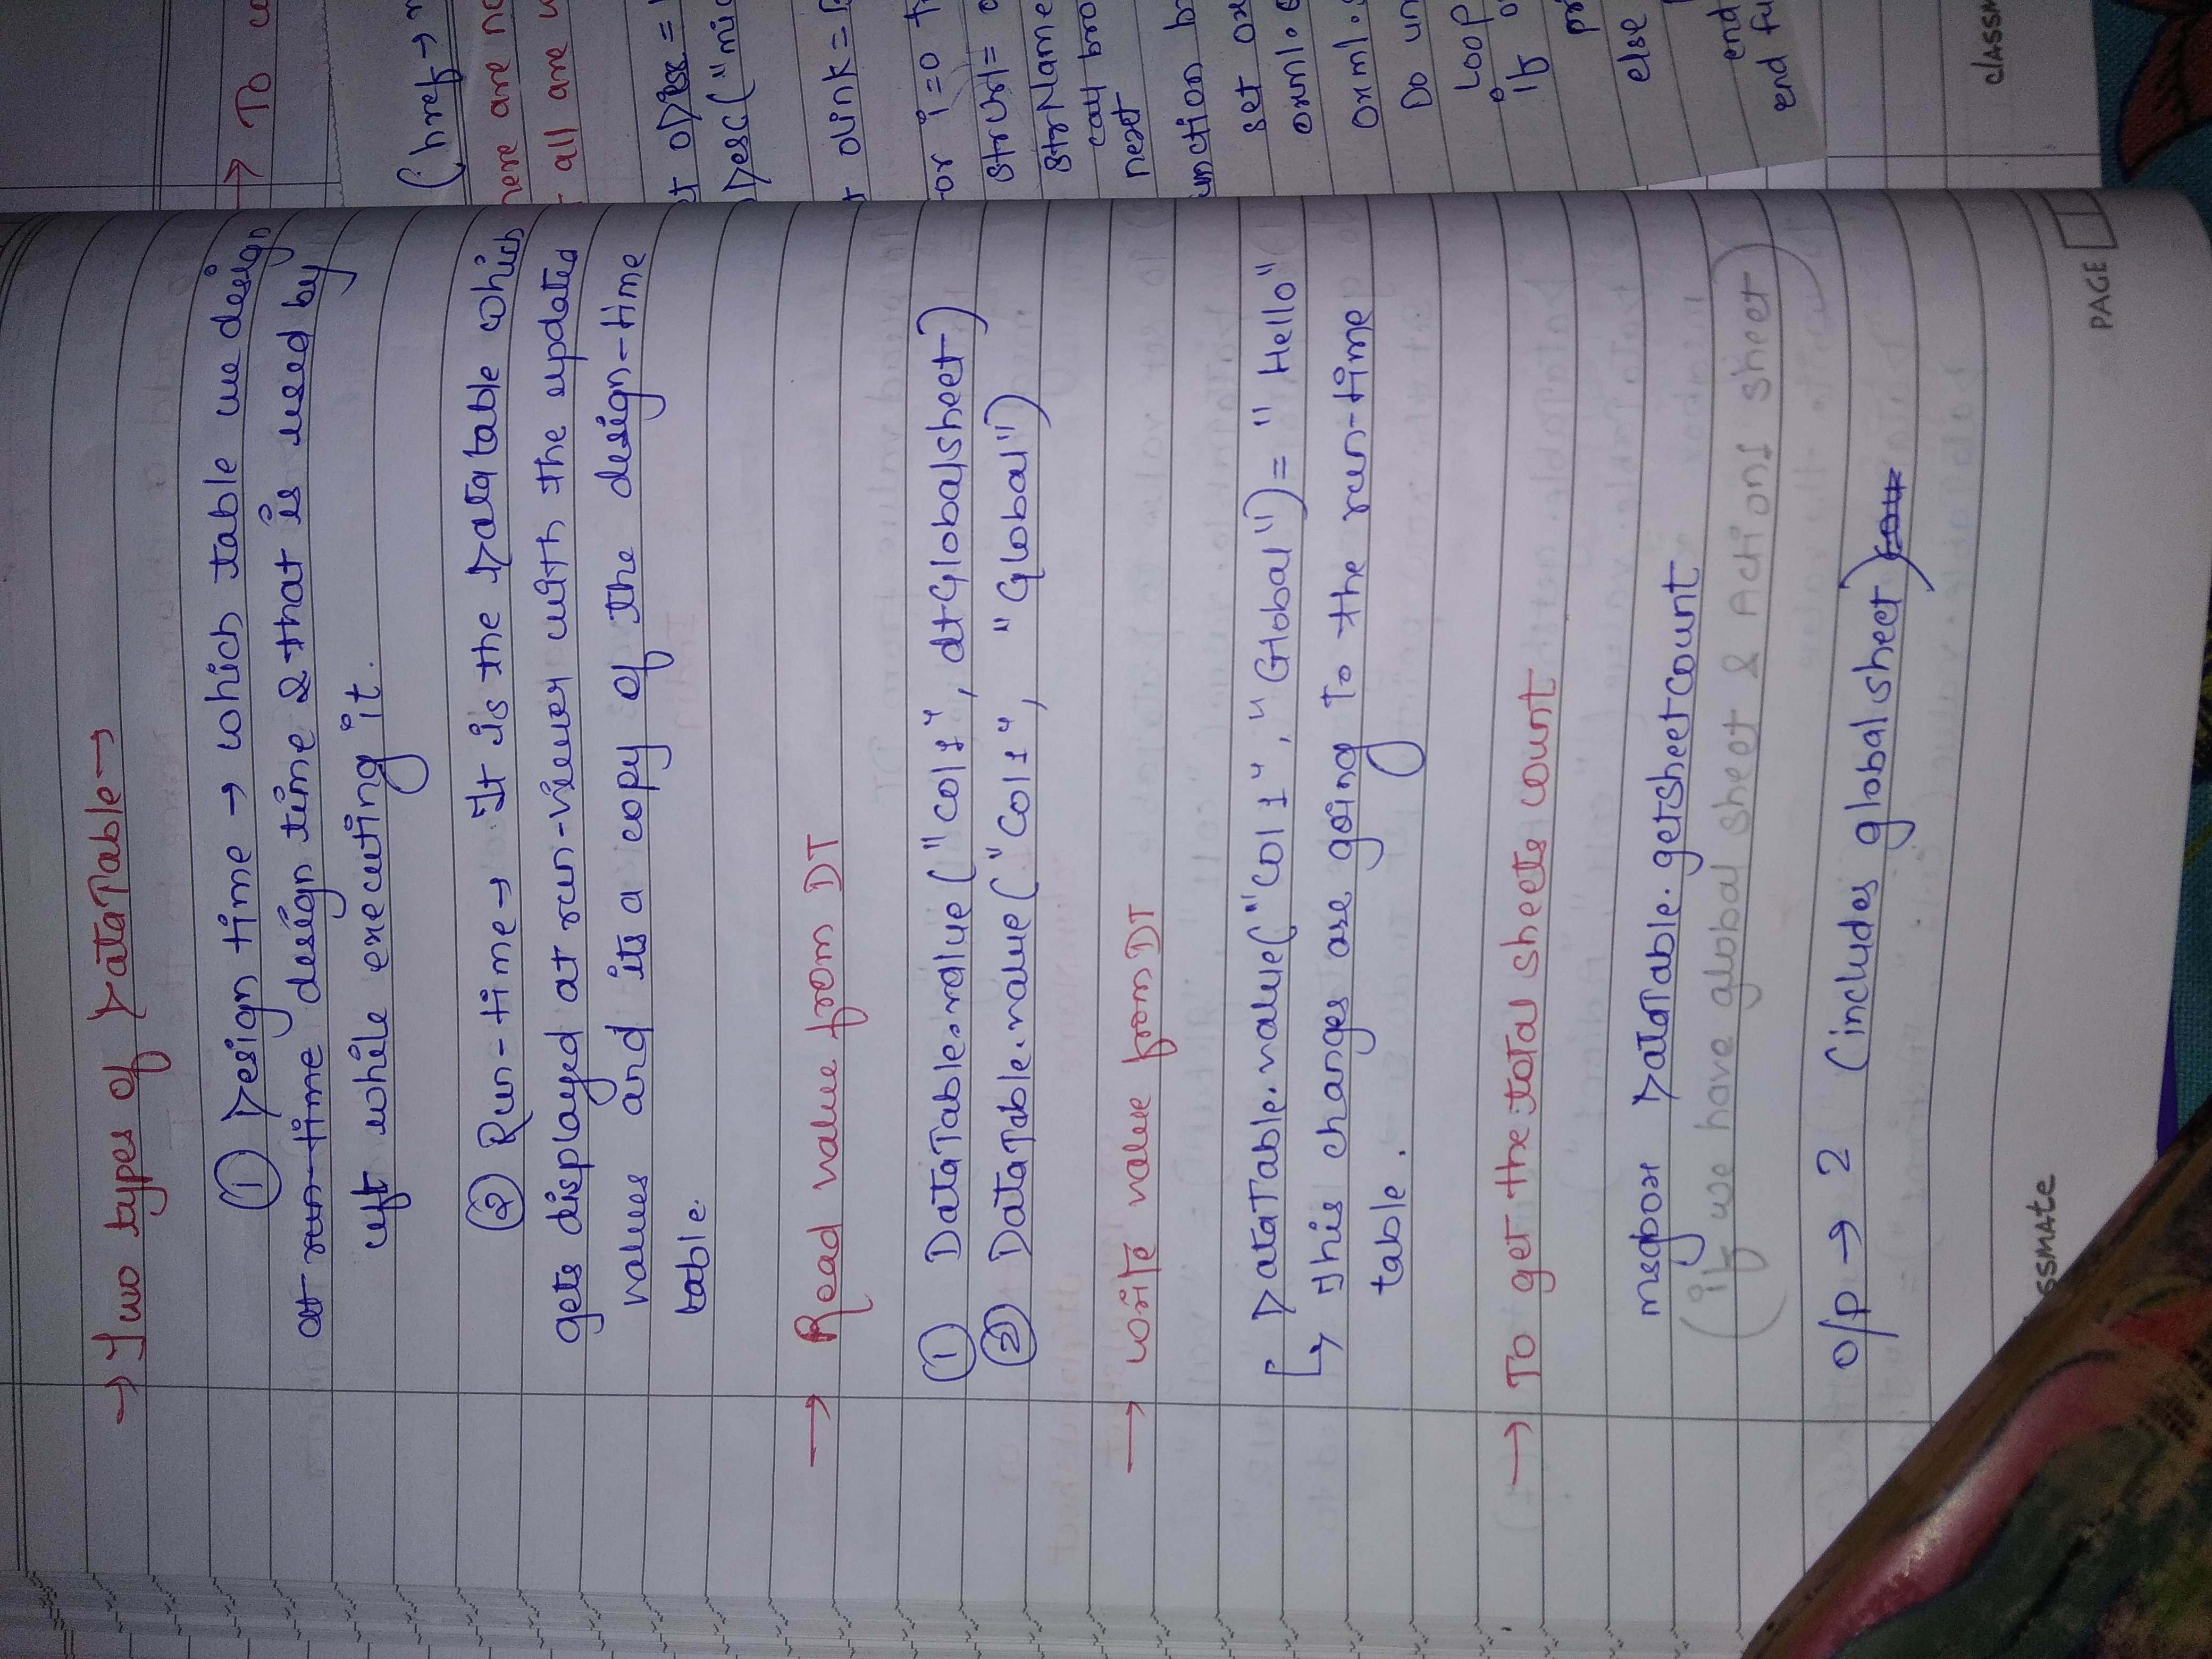 → Two types of DataTable →
① Design time → which table we design
at run-time design time & that is used by
uft while executing it.
② Run-time → It is the Datatable which
gets displayed at run-viewer with the updated
values and its a copy of the design-time
table.
→ Read value from DT
① DataTable.value("col1", dtGlobalsheet)
② DataTable.value("Col1", "Global")
→ write value from DT
DataTable.value("Col1", "Global") = "Hello"
↳ This changes are going to the run-time
table.
→ To get the total sheets count
msgbox DataTable.getsheetcount
(if we have global sheet & Action1 sheet)
o/p → 2 (includes global sheet)
SSMATE
PAGE
→ To
(href →
here are
all are
Desc("mic
olink =
or i=0
strurl=
strName
call bro
next
unction
set
oxml.
oxml.
Do un
Loop
if
else
end
end fu
CLASSM